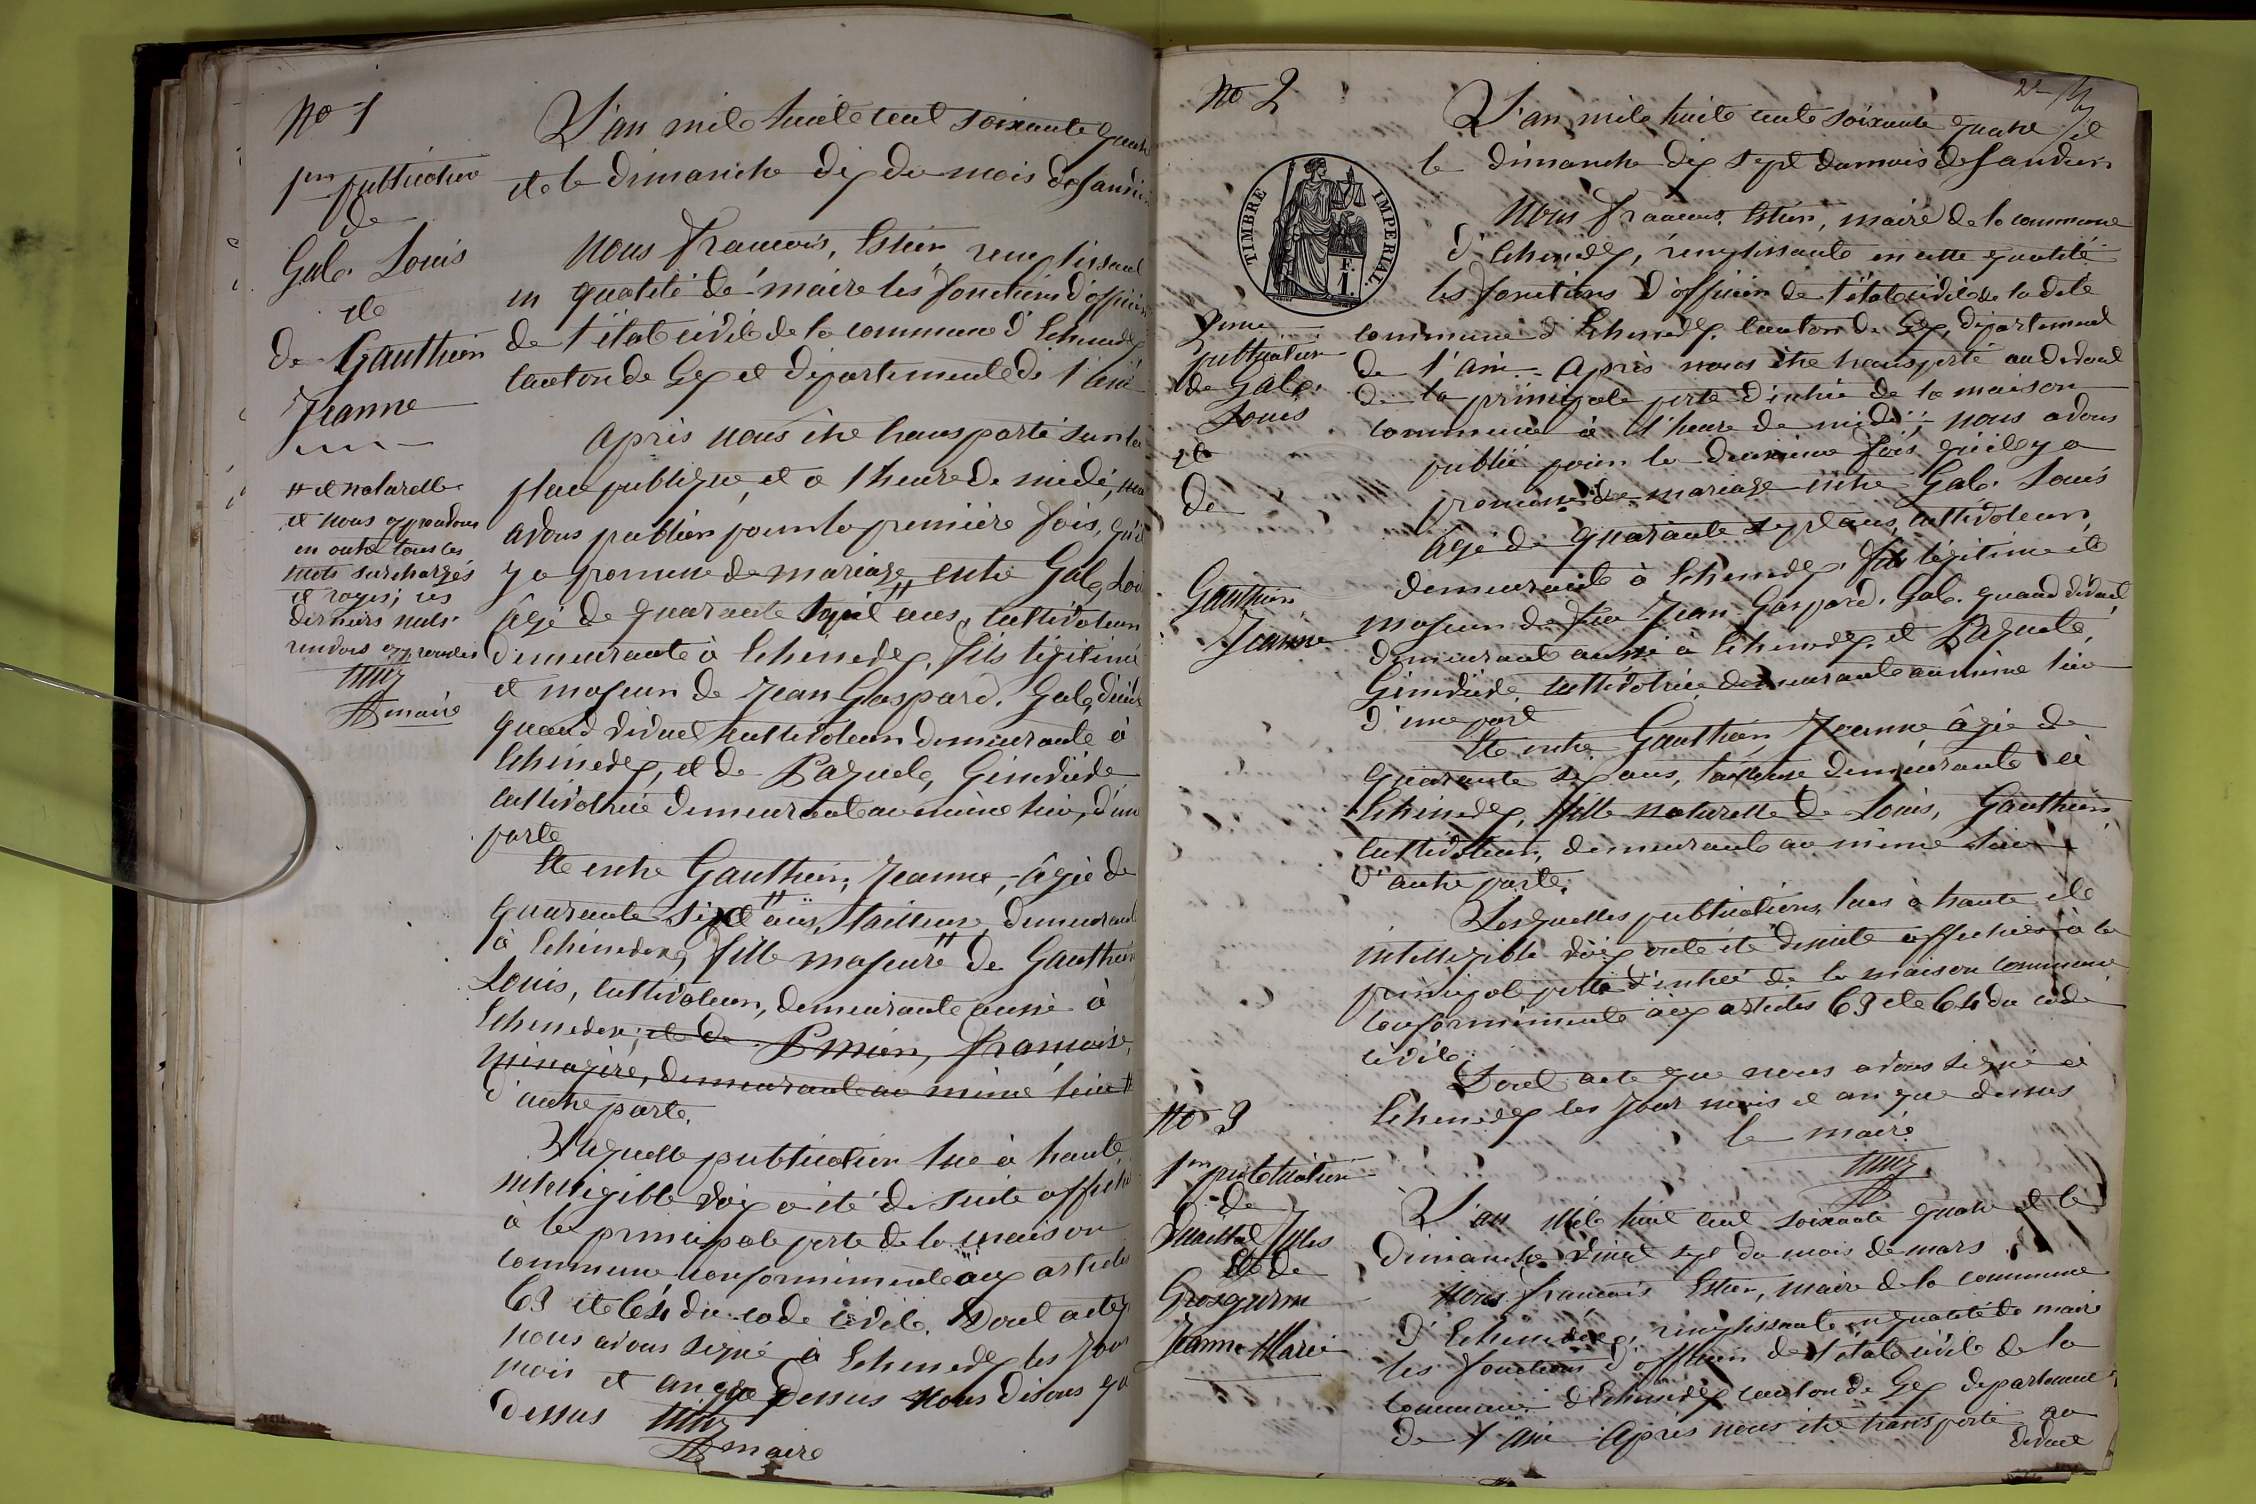 No 1
1re publication
de
Gal. Louis
et
de Gauthier
Jeanne
# et naturelle
et nous approuvons
en outre tous les
mots surchargés
et rayés; ces
derniers nuls
maire
L'an mil huit cent soixante quatre
et le dimanche dix du mois de Janvier
Nous François, Estier, remplissant
en qualité de maire les fonctions d'officier
de l'état civil de la commune d'Echenevex
canton de Gex et département de l'ain
Après nous être transporté sur la
place publique, et a l'heure de midi, nous
avons publier pour la première fois, qu'il
y a promesse de mariage entre Gal, Louis
âgé de quarante sept ans, cultivateur
demeurant à Echenevex, fils légitime
et majeur de Jean Gaspard. Gal,
quand vivait cultivateur demeurant à
Echenevex, et de Genevieve
cultivatrice demeurant au même lieu, d'une
parte
Et entre Gauthier, Jeanne, âgée de
quarante six ans, tailleuse, demeurant
à Echenevex, fille majeure # de Gauthier
Louis, cultivateur, demeurant aussi à
Echenevex; et de Françoise,
ménagère, demeurant au même lieu #
d'autre parte.
Laquelle publication lue à haute
intelligible voix a été de suite affichée
à la principale porte de la maison
commune conformément aux articles
63 et 64 du code civil. Dont acte
nous avons signé à Echenevex les jour
mois et an que dessus nous disons que
dessus
maire
No 2
TIMBRE IMPERIAL
F.
1.
2me
publication
de Gal.
Louis
et
de
Gauthier,
Jeanne
22
L'an mil huit cent soixante quatre et
le dimanche dix sept du mois de Janvier
Nous François Estier, maire de la commune
d'Echenevex, remplissant en cette qualité
les fonctions d'officier de l'état civil de la dite
commune d'Echenevex. canton de Gex, département
de l'ain. Après nous être transporté au devant
de la principale porte d'entrée de la maison
commune à l'heure de midi, nous avons
publié pour la deuxième fois qu'il y a
promesse de mariage entre Gal. Louis
âgé de quarante sept ans, cultivateur,
demeurant à Echenevex. fils légitime et
majeur de feu Jean Gaspard. Gal. quand vivait
demeurant aussi à Echenevex. et
Genevieve cultivatrice demeurant au même lieu
d'une part
Et entre Gauthier, Jeanne âgée de
quarante six ans, tailleuse demeurante à
Echenevex, fille naturelle de Louis, Gauthier,
cultivateur, demeurant au même lieu
d'autre parte.
Lesquelles publications lues à haute et
intelligible voix ont été de suite affichées à la
principale porte d'entrée de la maison commune
conformément aux articles 63 et 64 du code
civil.
Dont acte que nous avons signé à
Echenevex les jour mois et an que dessus
le maire
No 3
1re publication
de
Jules
et de
Grosgurin
Jeanne Marie
L'an mil huit cent soixante quatre et le
dimanche vingt sept du mois de mars
Nous François Estier, maire de la commune
d'Echenevex, remplissant en qualité de maire
les fonctions d'officier de l'état civil de la
commune d'Echenevex canton de Gex departement
de l'ain Après nous être transporté au
devant